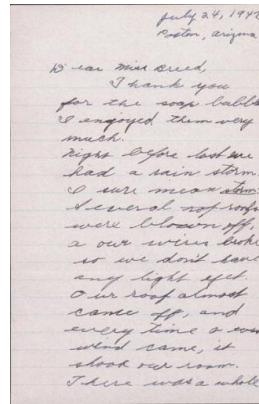 July 24, 1942
Poston, Arizona
Dear Miss Breed,
Thank you
for the soap bubble
I enjoyed them very
much.
Night before last we
had a rain storm.
I sure mean storm.
Several roofs
were blown off,
a our wires broke
so we don't have
any light yet.
Our roof almost
came off, and
every time a
wind came, it
shook our room.
There was a whole